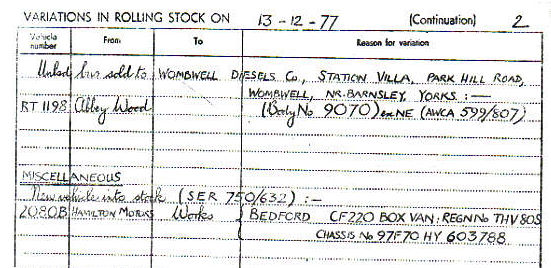 VARIATIONS IN ROLLING STOCK ON 13-12-77 (Continuation) 2
Vehicle number From To Reason for variation
Unlsd bus sold to WOMBWELL DIESELS Co., STATION VILLA, PARK HILL ROAD,
WOMBWELL, NR. BARNSLEY, YORKS :—
RT 1198 Abbey Wood (Body No 9070) ex NE (AWCA 599/807)
MISCELLANEOUS
New vehicle into stock (SER 750/632) :—
2080B HAMILTON MOTORS Works BEDFORD CF220 BOX VAN: REGN No THV 80S
CHASSIS No 97F70 HY 603788